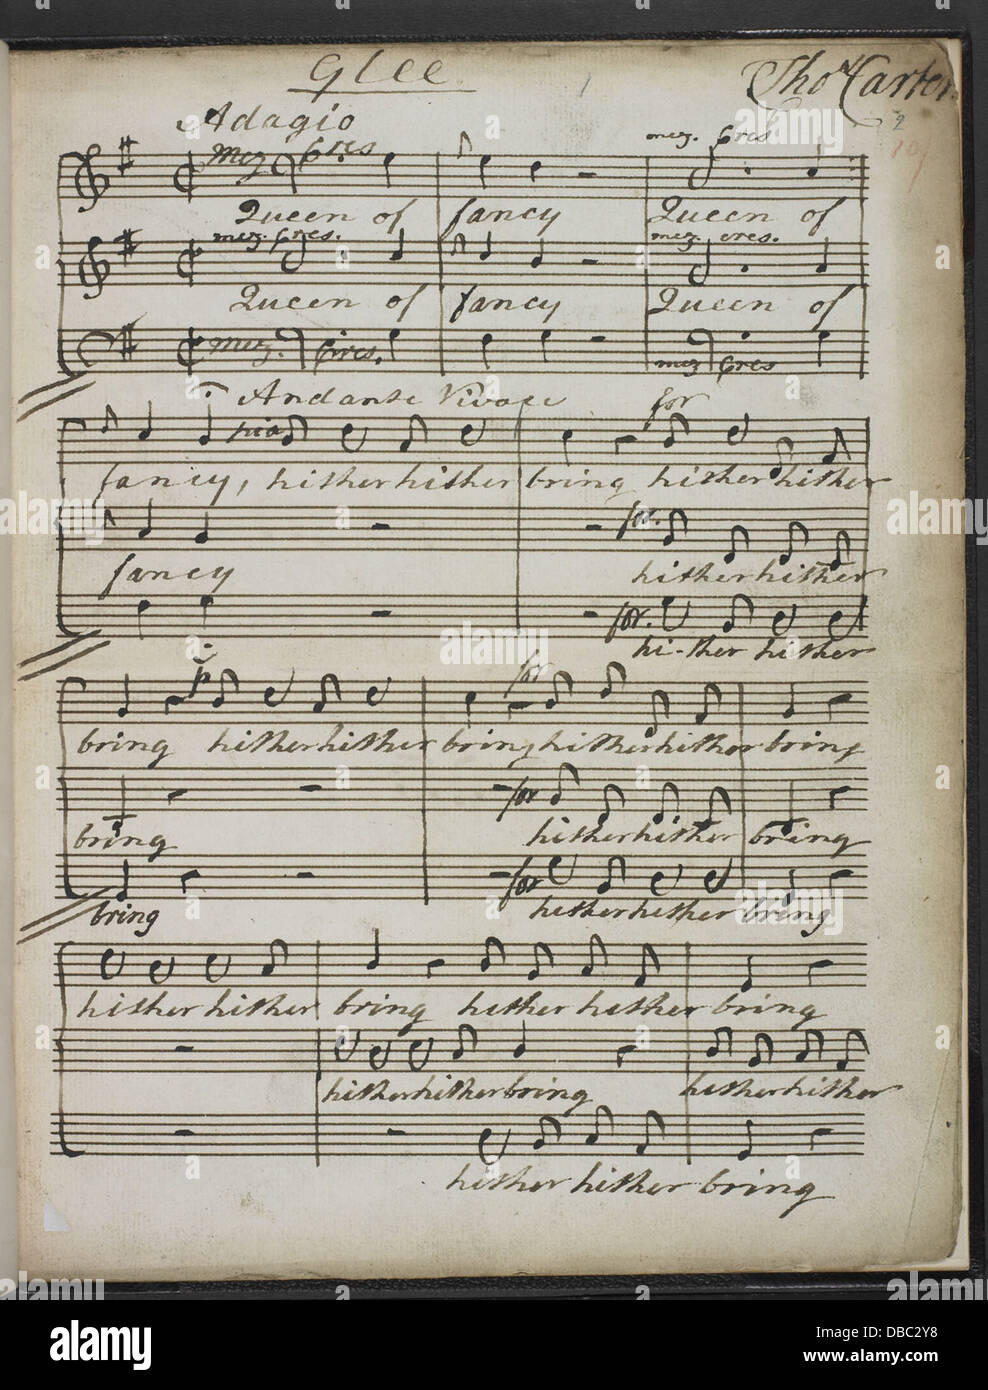 Glee
Tho.s Carter
1
2
Adagio
mez. Cres
mez. Cres
Queen of fancy Queen of
mez. Cres. mez. cres.
Queen of fancy Queen of
mez. Cres. mez Cres
Andante Vivace for
pia
fancy, hither hither bring hither hither
for.
fancy hither hither
for.
hi-ther hither
p for
bring hither hither bring hither hither bring
for
bring hither hither bring
for
bring hither hither bring
hither hither bring hither hither bring
hither hither bring hither hither
hither hither bring
alamy
Image ID: DBC2Y8
www.alamy.com